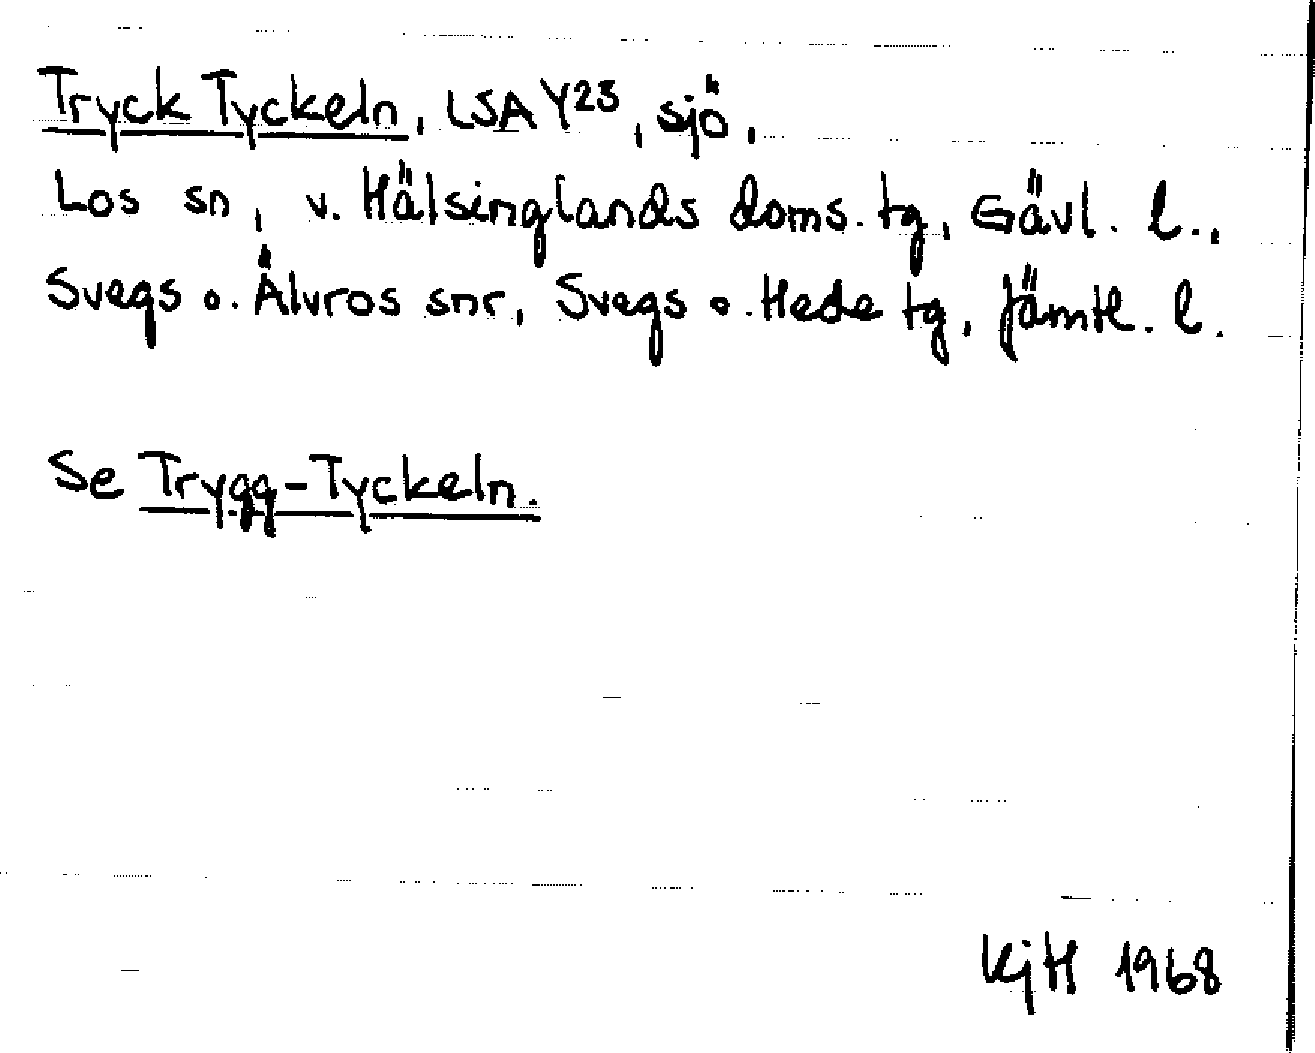 Tryck Tyckeln, LSA Y23, sjö,
Los sn, v. Hälsinglands doms. tg, Gävl. l.,
Svegs o. Älvros snr, Svegs o. Hede tg, Jämtl. l.
Se Trygg-Tyckeln.
KjH 1968